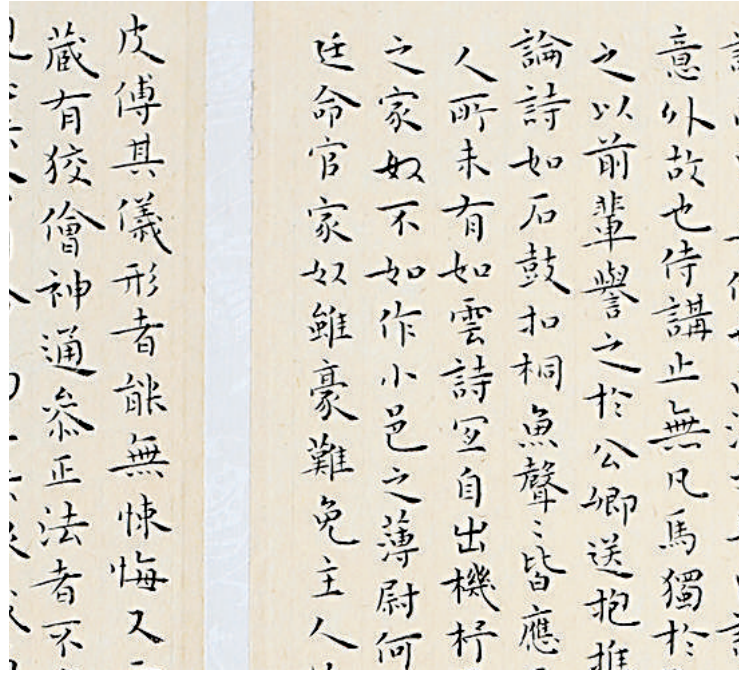 意外故也侍講止無凡馬獨於
之以前輩譽之於公卿送抱推
論詩如石鼓扣桐魚聲〻皆應
人所未有如雲詩自出機杼
之家奴不如作小邑之薄尉何
廷命官家奴雖豪難免主人
皮傅其儀形者能無悚悔又
蔵有狡獪神通叅正法者不